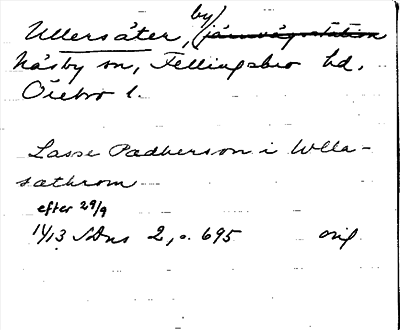 Ullersäter, by, (järnvägsstation
Näsby sn, Fellingsbro hd,
Örebro l.
Lasse Padherson i Wlla-
sæthrom
efter 29/9
1413 SDns 2, s. 695 orig